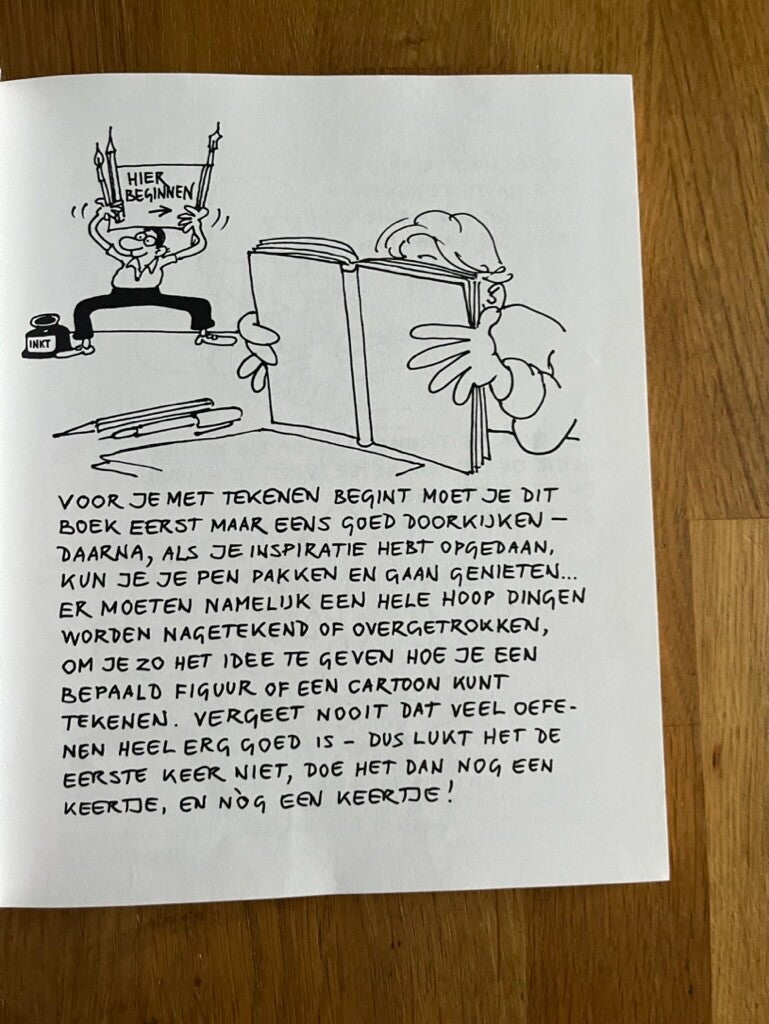 HIER
BEGINNEN
INKT
VOOR JE MET TEKENEN BEGINT MOET JE DIT
BOEK EERST MAAR EENS GOED DOORKIJKEN –
DAARNA, ALS JE INSPIRATIE HEBT OPGEDAAN,
KUN JE JE PEN PAKKEN EN GAAN GENIETEN...
ER MOETEN NAMELIJK EEN HELE HOOP DINGEN
WORDEN NAGETEKEND OF OVERGETROKKEN,
OM JE ZO HET IDEE TE GEVEN HOE JE EEN
BEPAALD FIGUUR OF EEN CARTOON KUNT
TEKENEN. VERGEET NOOIT DAT VEEL OEFE-
NEN HEEL ERG GOED IS – DUS LUKT HET DE
EERSTE KEER NIET, DOE HET DAN NOG EEN
KEERTJE, EN NÒG EEN KEERTJE!